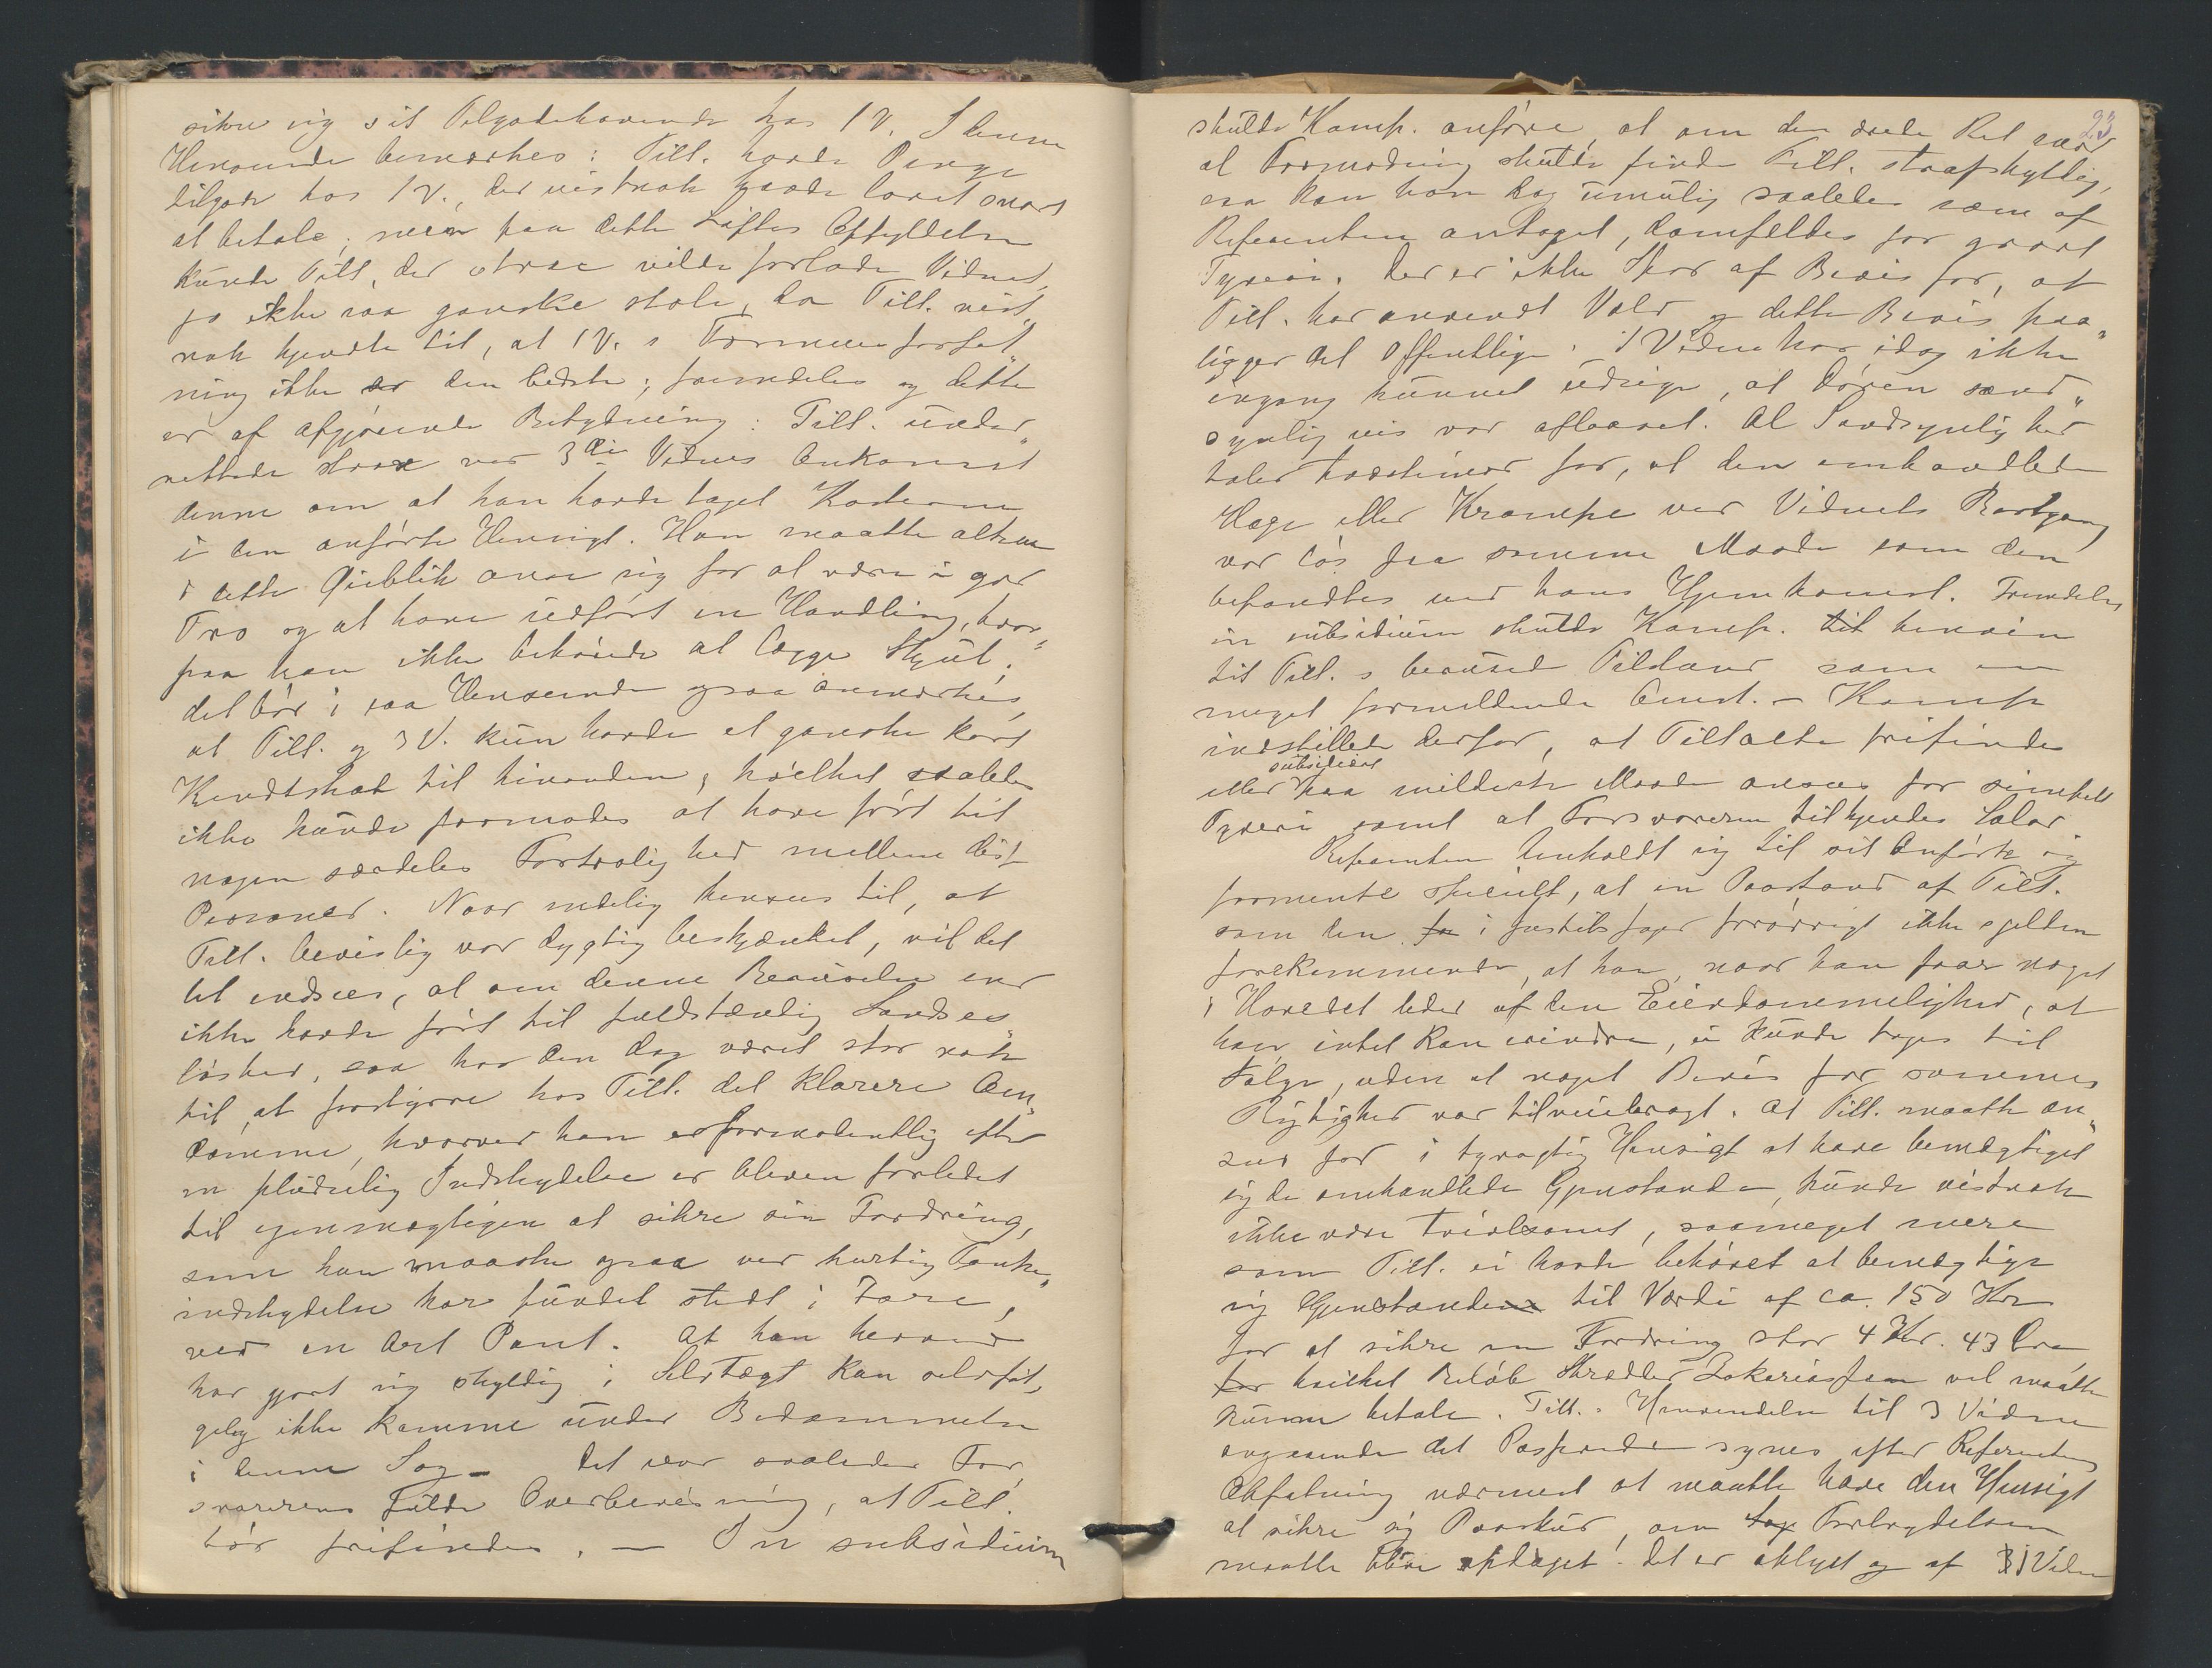 sikre sig sit Tilgodehavende hos 1 V. I denne
Henseende bemærkes: Tilt. havde Penge
tilgode hos 1 V., der vistnok havde lovet snart
at betale; men paa dette Løftes Opfyldelse
kunde Tilt, der strax vilde forlade Vidnet,
jo ikke saa ganske stole, da Tilt. vist„
nok kjendte til, at 1 V. s Formuesforfat„
ning ikke er den bedste; fremdeles og dette
er af afgjørende Betydning: Tilt. under„
rettede strax ved 3die Vidnes Ankomst
denne om at han havde taget Koderne
i den anførte Hensigt. Han maatte altsaa
i dette Øieblik anse sig for at være i god
Tro og at have udført en Handling, hvor„
paa han ikke behøvede at lægge Skjul.
det bør i saa Henseende ogsaa anmærkes,
at Tilt. og 3 V. kun havde et ganske kort
Kendtskab til hinanden, hvilket saaledes
ikke kunde formodes at have ført til
nogen særdeles Fortrolighed mellem disse
Personer. Naar endelig hensees til, at
Tilt. bevislig var dygtig beskjænket, vil det
let indsees, at om denne Beruselse end
ikke havde ført til fuldstændig Sandses„
løshed, saa har den dog været stor nok
til, at forstyrre hos Tilt. det klarere Om„
dømme, hvorved han er formodentlig efter
en pludselig Indskydelse er bleven forledet
til egenmægtigen at sikre sin Fordring,
som han maaske ogsaa ved hurtig Tanke„
indskydelse har fundet stedt i Fare,
ved en Art Pant. At han herved
har gjort sig skyldig i Selvtægt kan selvføl„
gelig ikke komme under Bedømmelse
i denne Sag – Det var saaledes For„
svarerens fulde Overbevisning, at Tilt.
bør frifindes. – In subsidium
23
skulde Komp. anføre, at om den ærede Ret mod
al Formodning skulde finde Tilt. strafskyldig,
saa kan han dog umulig saaledes som af
Referenten antaget, domfældes for groft
Tyveri. Der er ikke Spor af Bevis for, at
Tilt. har anvendt Vold og dette Bevis paa„
ligger det Offentlige. 1 Vidne har idag ikke
engang kunnet udsige, at Døren sand„
synligvis var aflaaset. Al Sandsynlighed
taler tværtimod for, at den omhandlede
Hage eller Krampe ved Vidnets Bortgang
var løs paa samme Maade som den
befandtes ved hans Hjemkomst. Fremdeles
in subsidium skulde Komp. til henvise
til Tilt. s beruset Tilstand som en
meget formildende Omst. – Komp
indstillede derfor, at Tiltalte frifindes
subsidiært
eller paa mildeste Maade ansees for simpelt
Tyveri samt at Forsvareren tilkjendes Salær
Referenten henholdt sig til sit Anførte og
formente specielt, at en Paastand af Tilt.
som den fo i Justitssager forøvrigt ikke sjelden
forekommende, at han, naar han faar noget
i Hovedet lider af den Eiendommelighed, at
han intet kan erindre, ei kunde tages til
Følge, uden at noget Bevis for sammes
Rigtighed var tilveiebragt. At Tilt. maatte an„
sees for i tyvagtig Hensigt at have bemægtiget
sig de omhandlede Gjenstande, kunde vistnok
ikke være tvivlsomt, saameget mere
som Tilt. ei havde behøvet at bemægtige
sig Gjenstande til Værdi af ca. 150 Kr
for at sikre en Fordring stor 4 Kr. 43 Øre
for hvilket Beløb Skrædder Zakariassen vel maatte
kunne betale. Tilt. s Henvendelse til 3 Vidne
angaaende det Passerede synes efter Referentens
Opfatning nærmest at maatte have den Hensigt
at sikre sig Paaskud, om top Forbrydelsen
maatte blive opdaget. Det er oplyst og af 3 Vidne